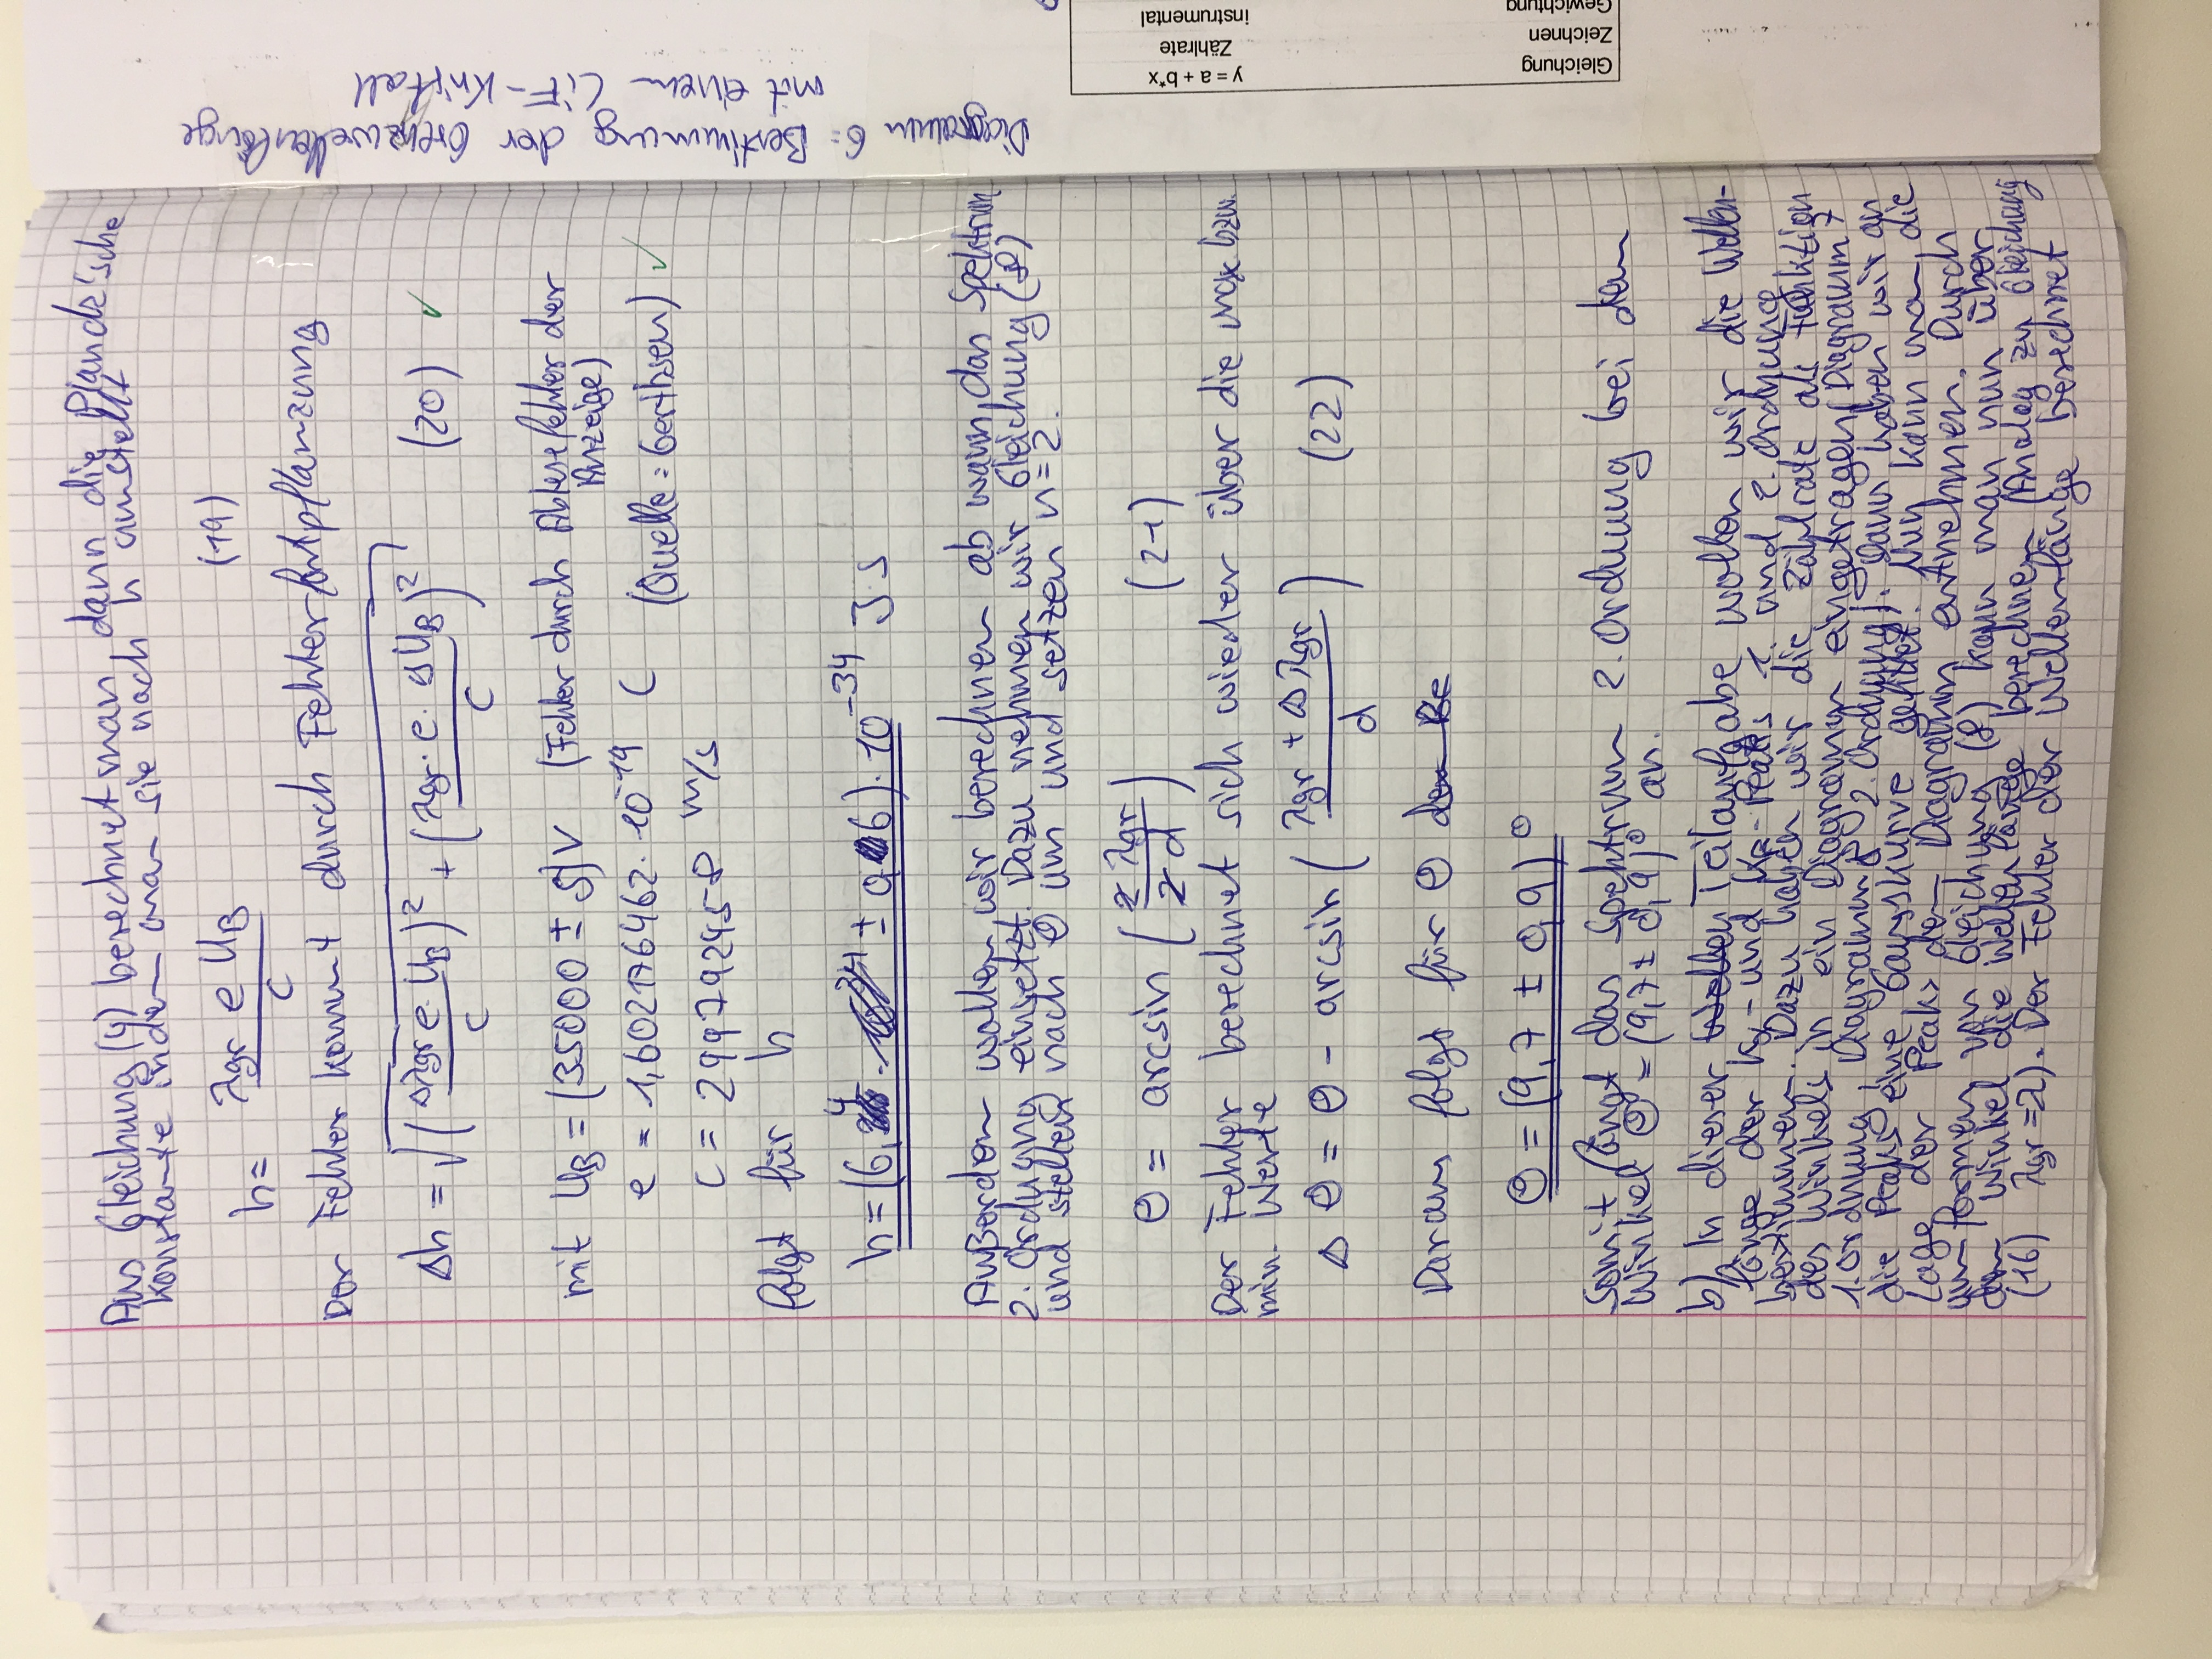 Aus Gleichung (4) berechnet man dann die Planck'sche
Konstante indem man sie nach h umstellt
h = λgr e UB / c (19)
Der Fehler kommt durch Fehlerfortpflanzung
Δh = √((Δλgr e · UB / c)² + (λgr · e · ΔUB / c)²) (20) ✓
mit UB = (35000 ± 5) V (Fehler durch Ablesefehler der
Anzeige)
e = 1,602176462 · 10^-19 C (Quelle: Gerthsen) ✓
c = 299792458 m/s
folgt für h
h = (6,4 ± 0,6) · 10^-34 J s
Außerdem wollen wir berechnen ab wann das Spektrum
2. Ordnung einsetzt. Dazu nehmen wir Gleichung (8)
und stellen nach Θ um und setzen n=2.
Θ = arcsin (2 λgr / 2 d) (21)
Der Fehler berechnet sich wieder über die max. bzw.
min. Werte
Δ Θ = Θ - arcsin (λgr + Δ λgr / d) (22)
Daraus folgt für Θ
Θ = (9,7 ± 0,9)°
Somit fängt das Spektrum 2. Ordnung bei dem
Winkel Θ = (9,7 ± 0,9)° an.
b) In dieser Teilaufgabe wollen wir die Wellen-
länge der Kα- und Kβ-Peaks 1. und 2. Ordnung
bestimmen. Dazu haben wir die Zählrate als Funktion
des Winkels in ein Diagramm eingetragen (Diagramm 7
1. Ordnung, Diagramm 8 2. Ordnung). Dann haben wir an
die Peaks eine Gausskurve gefittet. Nun kann man die
Lage der Peaks dem Diagramm entnehmen. Durch
umformen von Gleichung (8) kann man nun über
den Winkel die Wellenlänge berechnen (Analog zu Gleichung
(16) λgr = λ). Der Fehler der Wellenlänge berechnet
Diagramm 6: Bestimmung der Grenzwellenlänge
mit einem LiF-Kristall
Gleichung y = a + b*x
Zeichnen Zählrate
Gewichtung instrumental